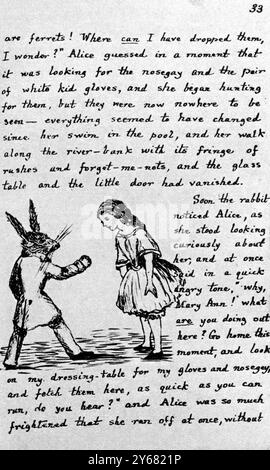 33
are ferrets! Where can I have dropped them,
I wonder?" Alice guessed in a moment that
it was looking for the nosegay and the pair
of white kid gloves, and she began hunting
for them, but they were now nowhere to be
seen — everything seemed to have changed
since her swim in the pool, and her walk
along the river-bank with its fringe of
rushes and forget-me-nots, and the glass
table and the little door had vanished.
Soon the rabbit
noticed Alice, as
she stood looking
curiously about
her, and at once
said in a quick
angry tone, "why,
Mary Ann! what
are you doing out
here? Go home this
moment, and look
on my dressing-table for my gloves and nosegay,
and fetch them here, as quick as you can
run, do you hear?" and Alice was so much
frightened that she ran off at once, without
alamy - 2Y6821P